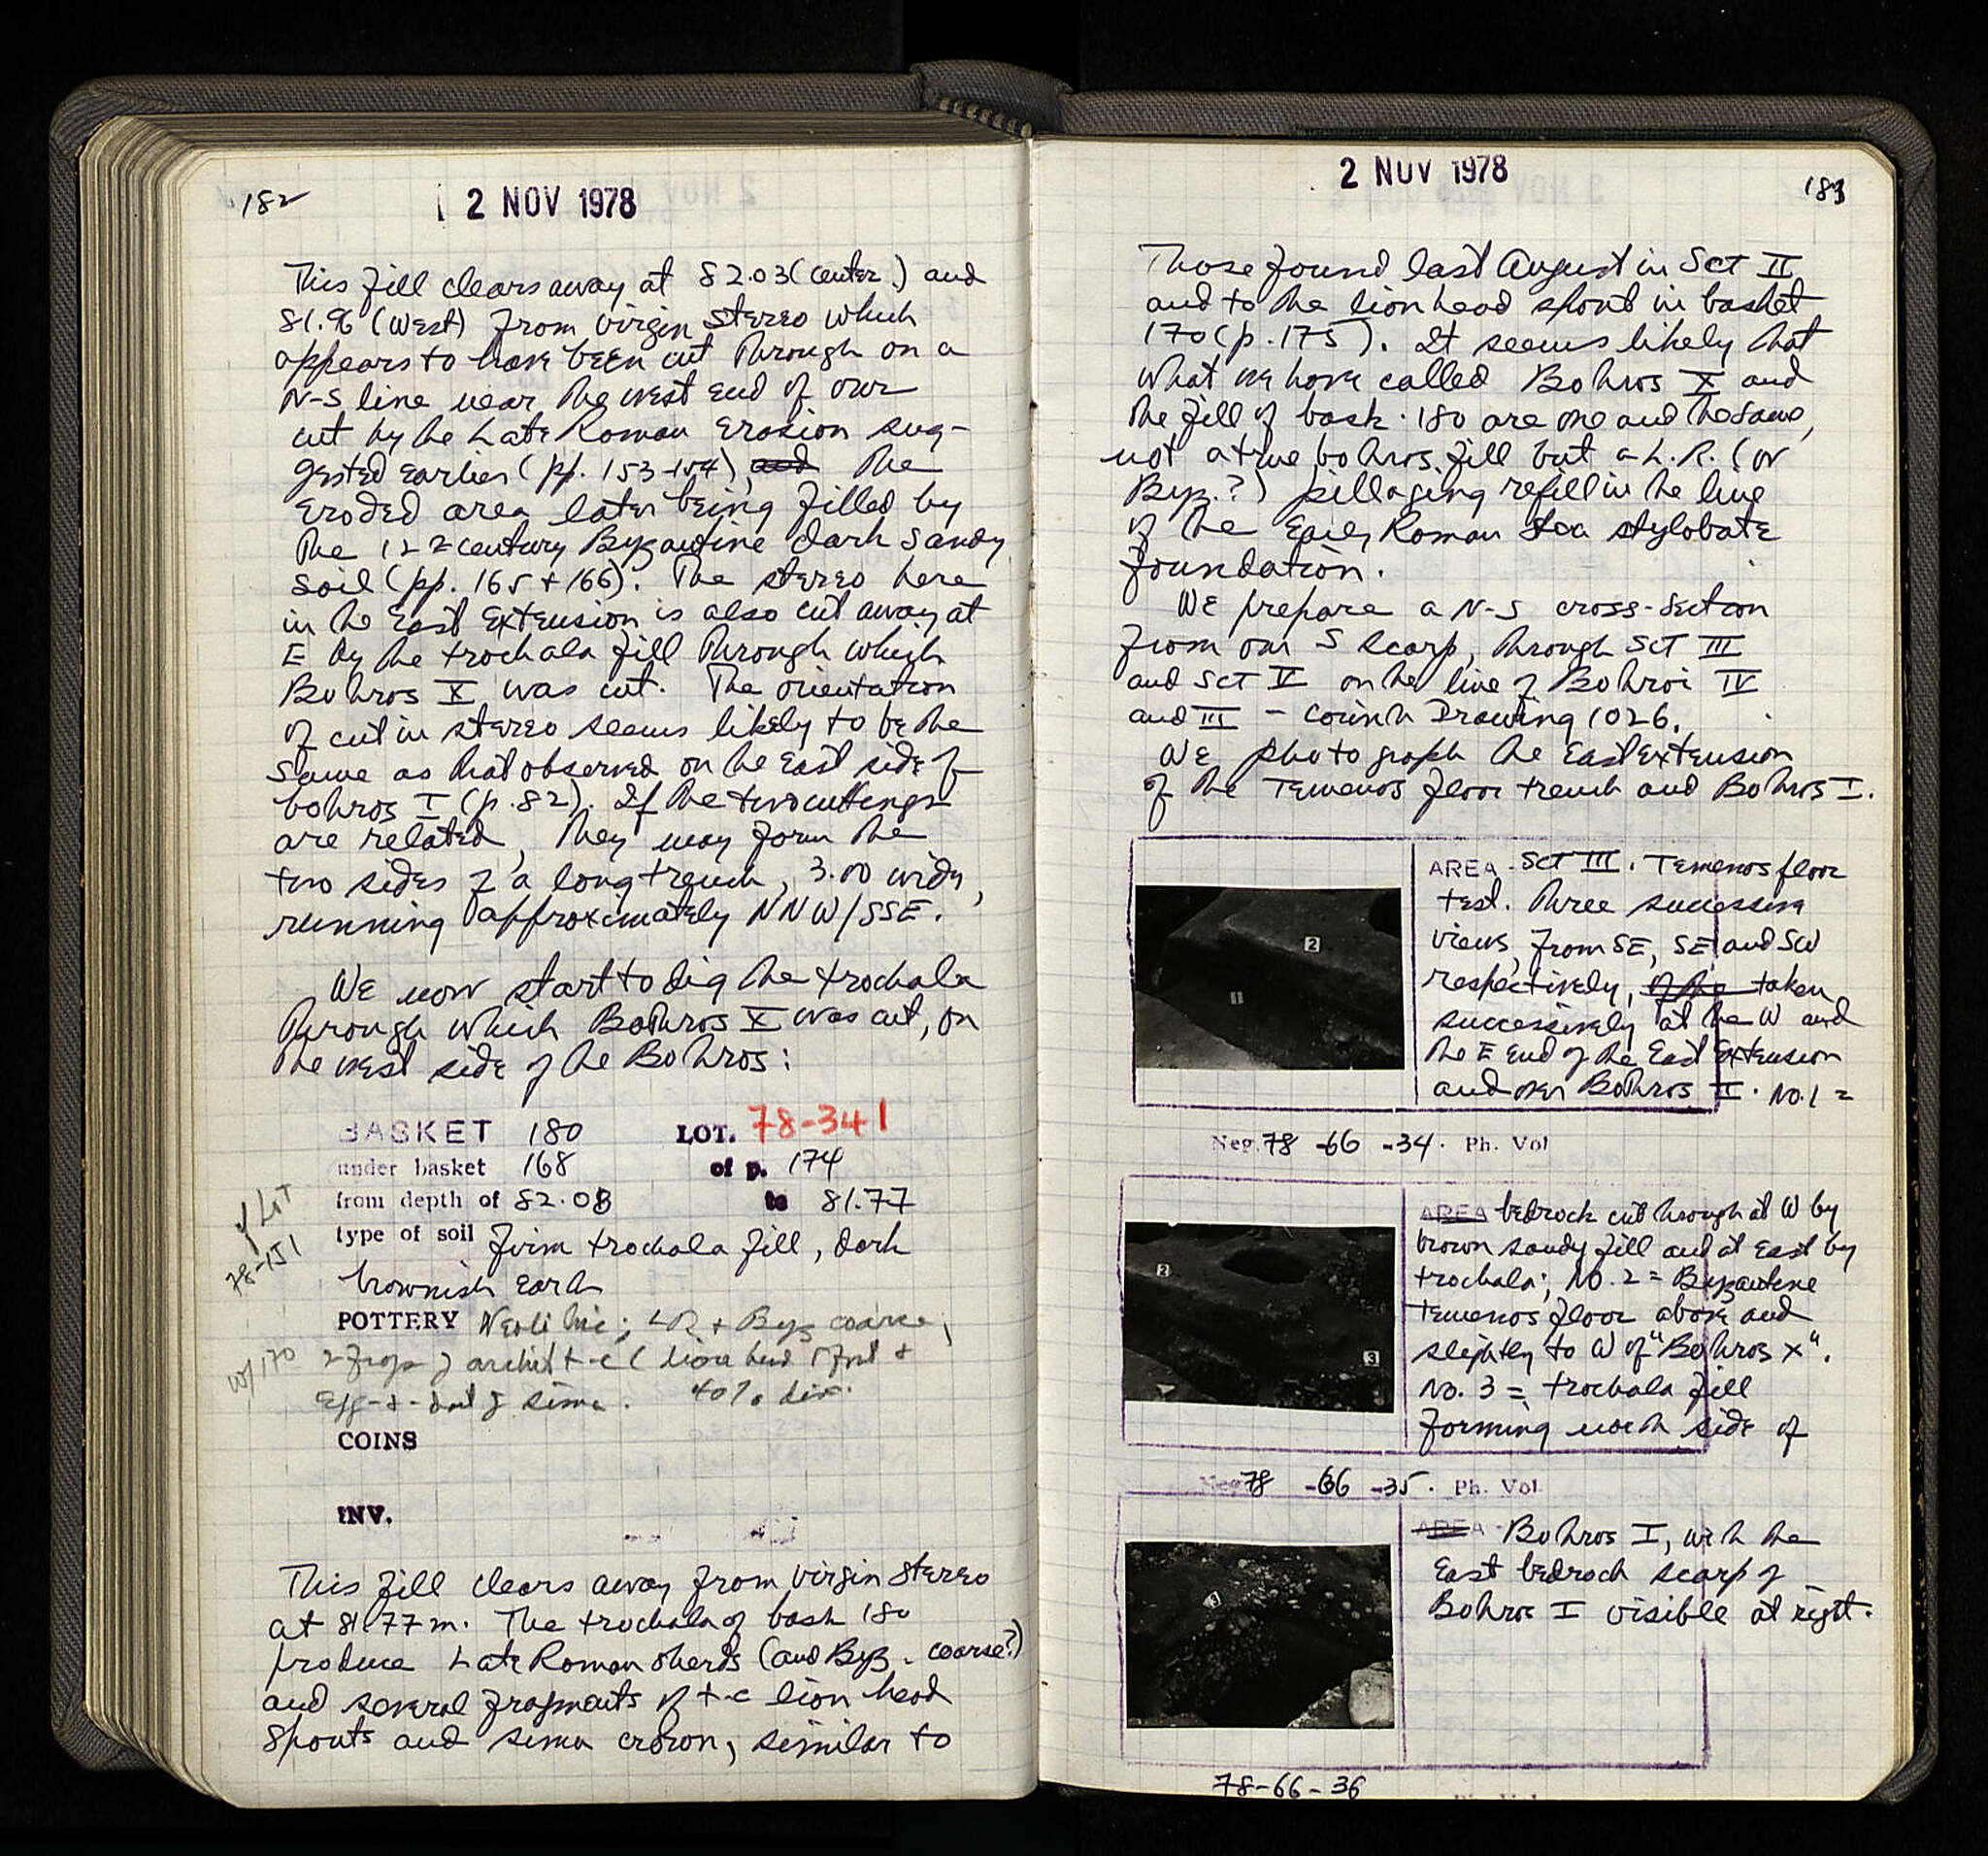 182
2 NOV 1978
This fill clears away at 82.03 (center) and
81.96 (West) from virgin stereo which
appears to have been cut through on a
N-S line near the west end of our
cut by the Late Roman Erosion sug-
gested earlier (pp. 153-154), and the
Eroded area later being filled by
the 12th century Byzantine dark sandy
soil (pp. 165 + 166). The stereo here
in the East Extension is also cut away at
E by the trochala fill through which
Bothros X was cut. The orientation
of cut in stereo seems likely to be the
same as that observed on the East side of
bothros I (p. 82). If the two cuttings
are related, they may form the
two sides of a long trench, 3.00 wide,
running approximately NNW/SSE.
We now start to dig the trochala
through which Bothros X was cut, on
the west side of the Bothros:
BASKET 180 LOT. 78-341
under basket 168 of p. 174
from depth of 82.03 to 81.77
type of soil firm trochala fill, dark
brownish Earth
POTTERY Neolithic; LR + Byz coarse;
2 frags of archit t-c (lion head spout +
Egg-+-dart of sima. 40% dis.
COINS
INV.
LOT
78-151
w/170
This fill clears away from virgin stereo
at 81.77 m. The trochala of bask 180
produce Late Roman sherds (and Byz. coarse?)
and several fragments of t-c lion head
spouts and sima crown, similar to
2 NOV 1978
183
Those found last August in Sct II
and to the lion head spout in basket
170 (p. 175). It seems likely that
what we have called Bothros X and
the fill of bask. 180 are one and the same,
not a true bothros fill but a L.R. (or
Byz.?) pillaging refill in the line
of the Early Roman Stoa stylobate
foundation.
WE prepare a N-S cross-section
from our S scarp, through Sct III
and Sct V on the line of Bothroi IV
and III - Corinth Drawing 1026.
WE photograph the East Extension
of the Temenos floor trench and Bothros I.
AREA Sct III. Temenos floor
test. Three successive
views, from SE, SE and SW
respectively, of the taken
successively at the W and
the E End of the East Extension
and over Bothros II. No. 1 =
2
Neg. 78 -66 -34. Ph. Vol
AREA bedrock cut through at W by
brown sandy fill and at East by
trochala; No. 2 = Byzantine
Temenos floor above and
slightly to W of "Bothros X".
No. 3 = trochala fill
forming north side of
2
3
Neg. 78 -66 -35. Ph. Vol
AREA Bothros I, with the
East bedrock scarp of
Bothros I visible at right.
3
78-66-36